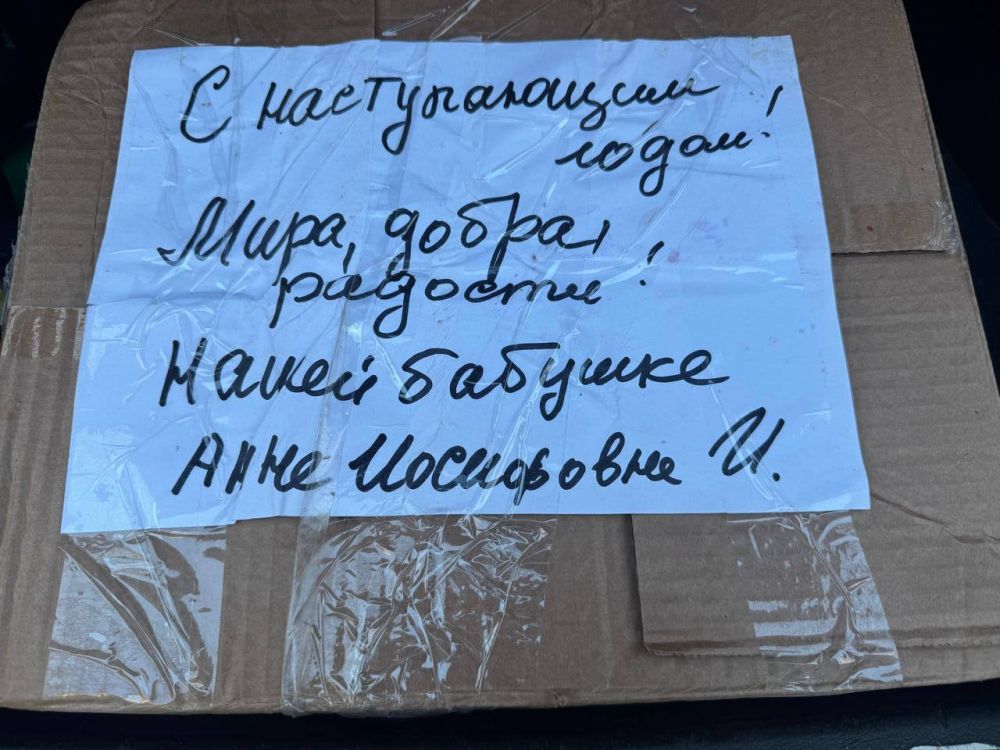 С наступающим
годом!
Мира, добра,
радости!
Нашей бабушке
Анне Иосифовне И.